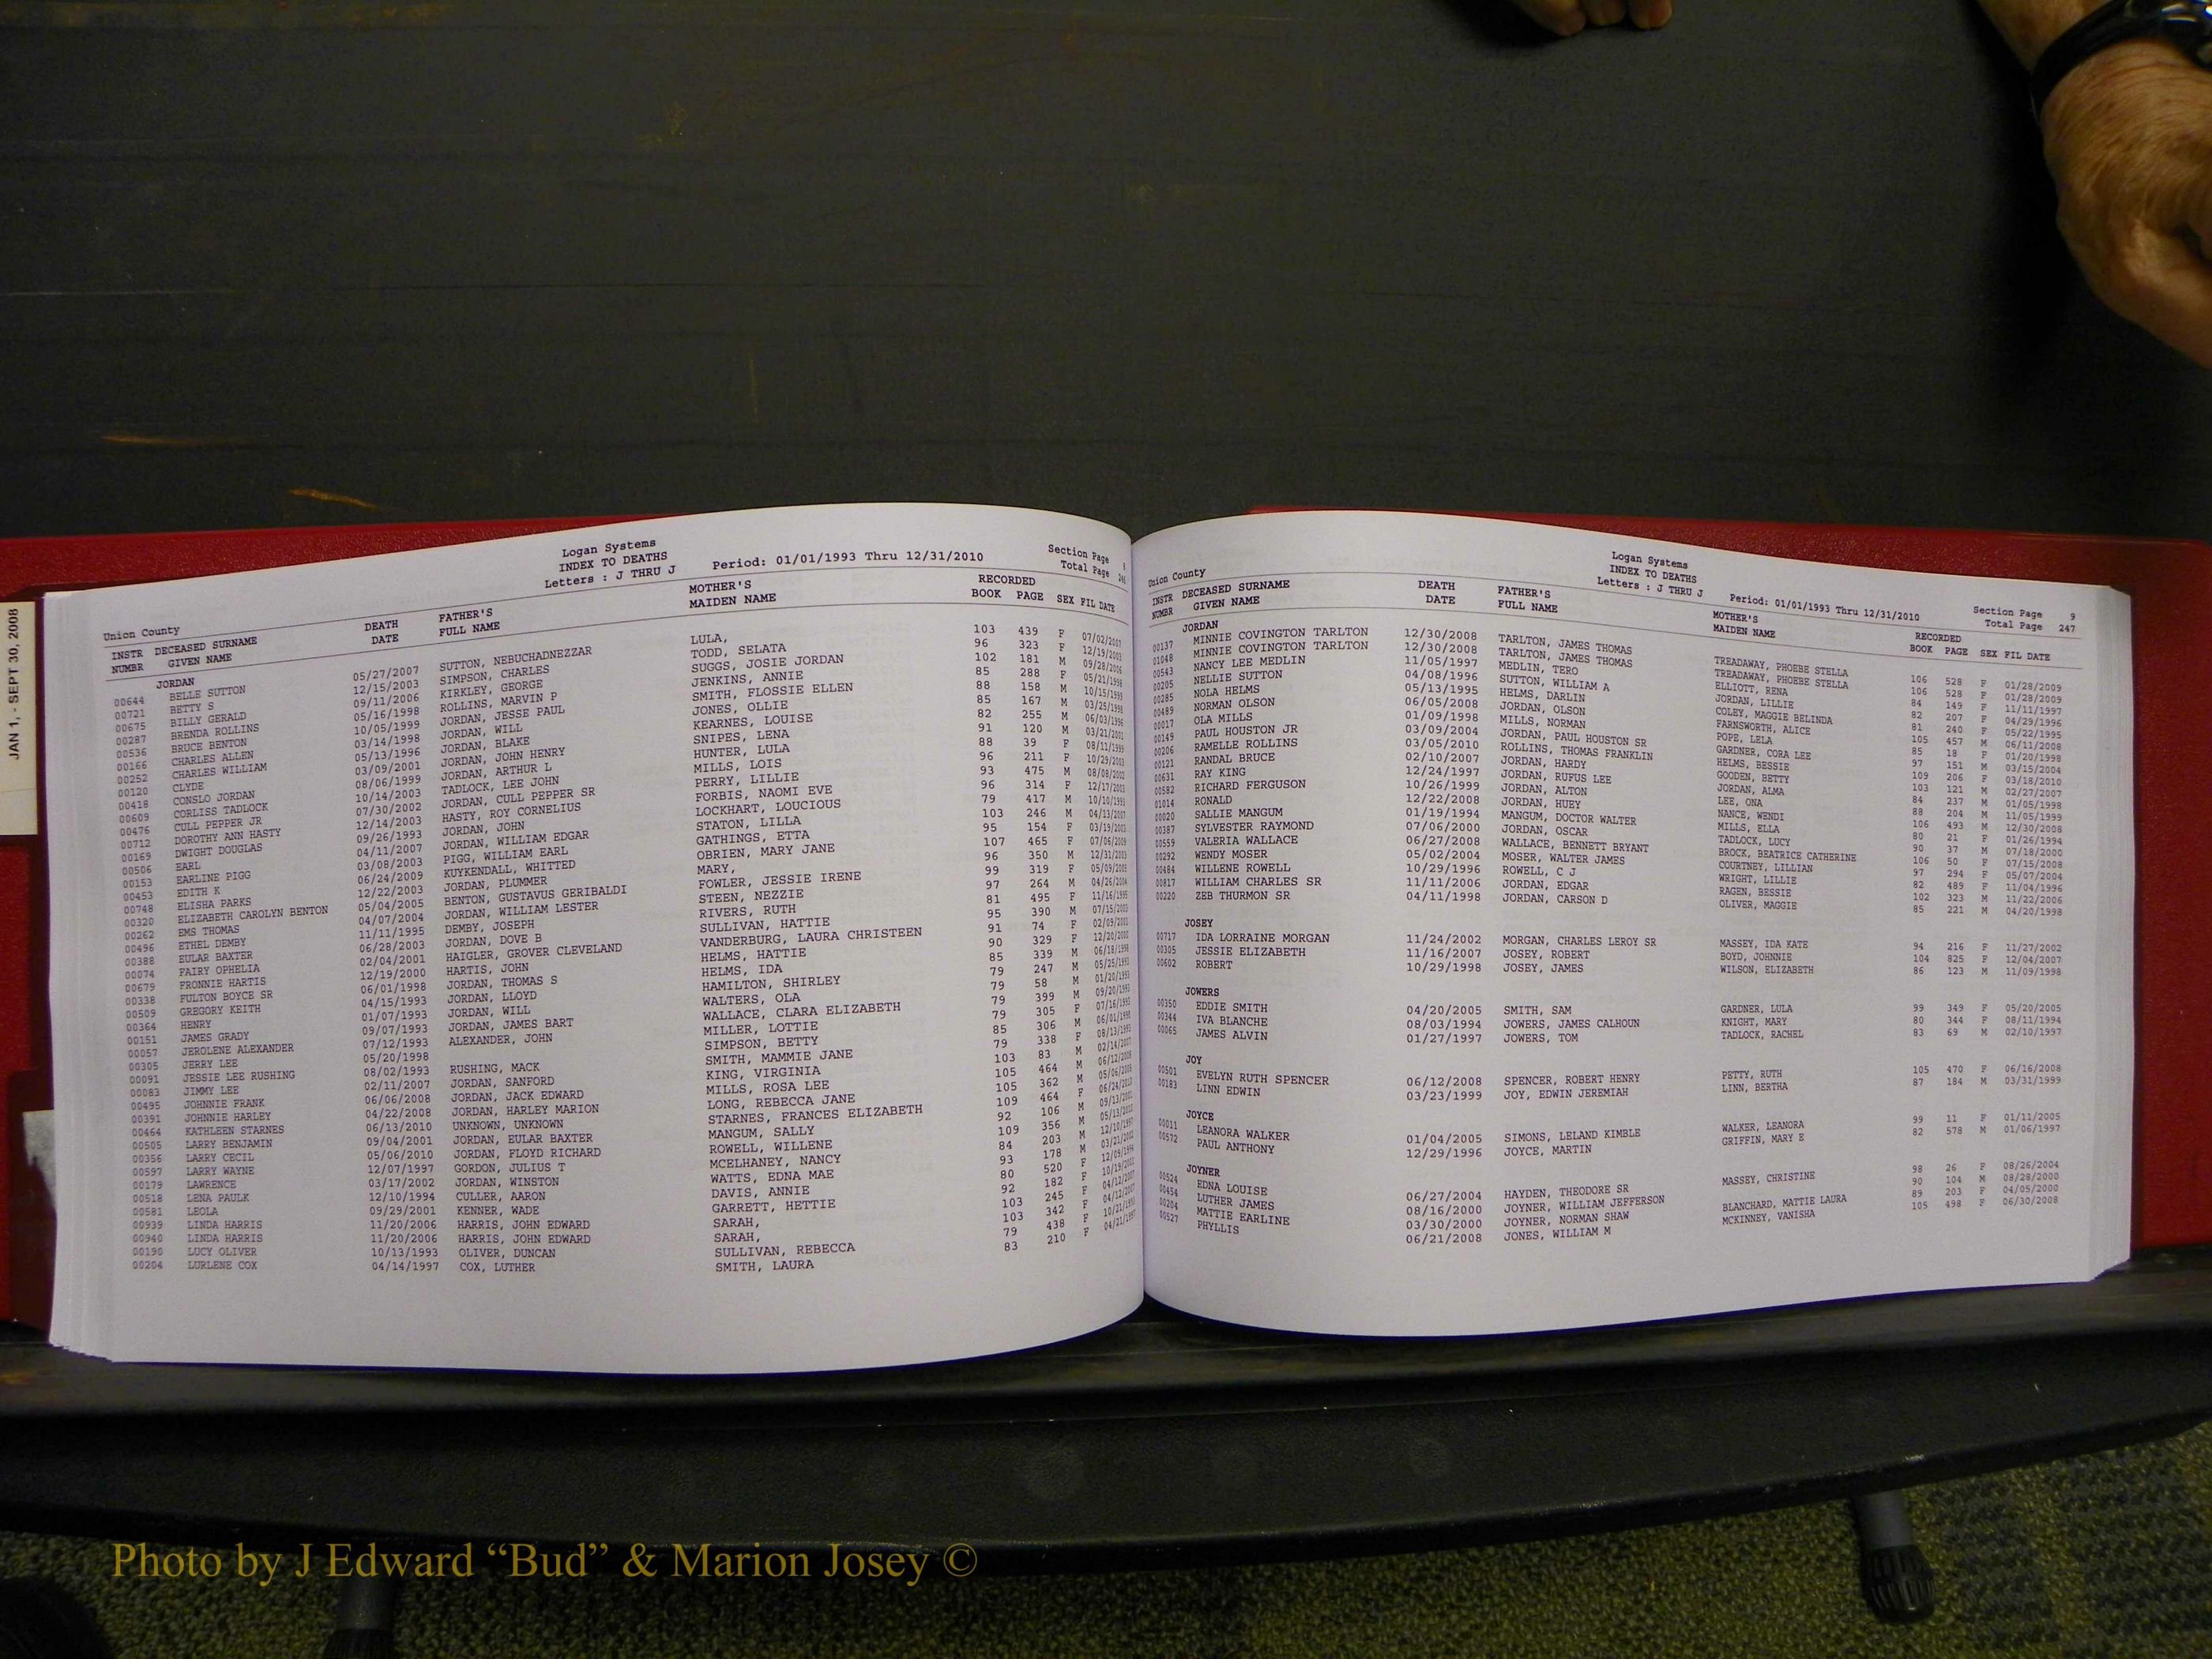 JAN 1, - SEPT 30, 2008
Union County
Logan Systems
INDEX TO DEATHS
Letters : J THRU J
Period: 01/01/1993 Thru 12/31/2010
Section Page 8
Total Page 246
INSTR DECEASED SURNAME DEATH FATHER'S MOTHER'S RECORDED
NUMBR GIVEN NAME DATE FULL NAME MAIDEN NAME BOOK PAGE SEX FIL DATE
JORDAN
00644 BELLE SUTTON 05/27/2007 SUTTON, NEBUCHADNEZZAR LULA, 103 439 F 07/02/2007
00721 BETTY S 12/15/2003 SIMPSON, CHARLES TODD, SELATA 96 323 F 12/19/2003
00675 BILLY GERALD 09/11/2006 KIRKLEY, GEORGE SUGGS, JOSIE JORDAN 102 181 M 09/28/2006
00287 BRENDA ROLLINS 05/16/1998 ROLLINS, MARVIN P JENKINS, ANNIE 85 288 F 05/21/1998
00536 BRUCE BENTON 10/05/1999 JORDAN, JESSE PAUL SMITH, FLOSSIE ELLEN 88 158 M 10/15/1999
00166 CHARLES ALLEN 03/14/1998 JORDAN, WILL JONES, OLLIE 85 167 M 03/25/1998
00252 CHARLES WILLIAM 05/13/1996 JORDAN, BLAKE KEARNES, LOUISE 82 255 M 06/03/1996
00120 CLYDE 03/09/2001 JORDAN, JOHN HENRY SNIPES, LENA 91 120 M 03/21/2001
00418 CONSLO JORDAN 08/06/1999 JORDAN, ARTHUR L HUNTER, LULA 88 39 F 08/11/1999
00609 CORLISS TADLOCK 10/14/2003 TADLOCK, LEE JOHN MILLS, LOIS 96 211 F 10/29/2003
00476 CULL PEPPER JR 07/30/2002 JORDAN, CULL PEPPER SR PERRY, LILLIE 93 475 M 08/08/2002
00712 DOROTHY ANN HASTY 12/14/2003 HASTY, ROY CORNELIUS FORBIS, NAOMI EVE 96 314 F 12/17/2003
00169 DWIGHT DOUGLAS 09/26/1993 JORDAN, JOHN LOCKHART, LOUCIOUS 79 417 M 10/10/1993
00506 EARL 04/11/2007 JORDAN, WILLIAM EDGAR STATON, LILLA 103 246 M 04/13/2007
00153 EARLINE PIGG 03/08/2003 PIGG, WILLIAM EARL GATHINGS, ETTA 95 154 F 03/19/2003
00453 EDITH K 06/24/2009 KUYKENDALL, WHITTED OBRIEN, MARY JANE 107 465 F 07/06/2009
00748 ELISHA PARKS 12/22/2003 JORDAN, PLUMMER MARY, 96 350 M 12/31/2003
00320 ELIZABETH CAROLYN BENTON 05/04/2005 BENTON, GUSTAVUS GERIBALDI FOWLER, JESSIE IRENE 99 319 F 05/09/2005
00262 EMS THOMAS 04/07/2004 JORDAN, WILLIAM LESTER STEEN, NEZZIE 97 264 M 04/26/2004
00496 ETHEL DEMBY 11/11/1995 DEMBY, JOSEPH RIVERS, RUTH 81 495 F 11/16/1995
00388 EULAR BAXTER 06/28/2003 JORDAN, DOVE B SULLIVAN, HATTIE 95 390 M 07/15/2003
00074 FAIRY OPHELIA 02/04/2001 HAIGLER, GROVER CLEVELAND VANDERBURG, LAURA CHRISTEEN 91 74 F 02/09/2001
00679 FRONNIE HARTIS 12/19/2000 HARTIS, JOHN HELMS, HATTIE 90 329 F 12/20/2000
00338 FULTON BOYCE SR 06/01/1998 JORDAN, THOMAS S HELMS, IDA 85 339 M 06/18/1998
00509 GREGORY KEITH 04/15/1993 JORDAN, LLOYD HAMILTON, SHIRLEY 79 247 M 05/25/1993
00364 HENRY 01/07/1993 JORDAN, WILL WALTERS, OLA 79 58 M 01/20/1993
00151 JAMES GRADY 09/07/1993 JORDAN, JAMES BART WALLACE, CLARA ELIZABETH 79 399 M 09/20/1993
00057 JEROLENE ALEXANDER 07/12/1993 ALEXANDER, JOHN MILLER, LOTTIE 79 305 F 07/16/1993
00305 JERRY LEE 05/20/1998 SIMPSON, BETTY 85 306 M 06/01/1998
00091 JESSIE LEE RUSHING 08/02/1993 RUSHING, MACK SMITH, MAMMIE JANE 79 338 F 08/13/1993
00083 JIMMY LEE 02/11/2007 JORDAN, SANFORD KING, VIRGINIA 103 83 M 02/14/2007
00495 JOHNNIE FRANK 06/06/2008 JORDAN, JACK EDWARD MILLS, ROSA LEE 105 464 M 06/12/2008
00391 JOHNNIE HARLEY 04/22/2008 JORDAN, HARLEY MARION LONG, REBECCA JANE 105 362 M 05/06/2008
00464 KATHLEEN STARNES 06/13/2010 UNKNOWN, UNKNOWN STARNES, FRANCES ELIZABETH 109 464 F 06/24/2010
00505 LARRY BENJAMIN 09/04/2001 JORDAN, EULAR BAXTER MANGUM, SALLY 92 106 M 09/13/2001
00356 LARRY CECIL 05/06/2010 JORDAN, FLOYD RICHARD ROWELL, WILLENE 109 356 M 05/13/2010
00597 LARRY WAYNE 12/07/1997 GORDON, JULIUS T MCELHANEY, NANCY 84 203 M 12/10/1997
00179 LAWRENCE 03/17/2002 JORDAN, WINSTON WATTS, EDNA MAE 93 178 M 03/21/2002
00518 LENA PAULK 12/10/1994 CULLER, AARON DAVIS, ANNIE 80 520 F
00581 LEOLA 09/29/2001 KENNER, WADE GARRETT, HETTIE 92 182 F 10/19/2001
00939 LINDA HARRIS 11/20/2006 HARRIS, JOHN EDWARD SARAH, 103 245 F 04/12/2007
00940 LINDA HARRIS 11/20/2006 HARRIS, JOHN EDWARD SARAH, 103 342 F 04/12/2007
00190 LUCY OLIVER 10/13/1993 OLIVER, DUNCAN SULLIVAN, REBECCA 79 438 F 10/21/1993
00204 LURLENE COX 04/14/1997 COX, LUTHER SMITH, LAURA 83 210 F 04/21/1997
Union County
Logan Systems
INDEX TO DEATHS
Letters : J THRU J
Period: 01/01/1993 Thru 12/31/2010
Section Page 9
Total Page 247
INSTR DECEASED SURNAME DEATH FATHER'S MOTHER'S RECORDED
NUMBR GIVEN NAME DATE FULL NAME MAIDEN NAME BOOK PAGE SEX FIL DATE
JORDAN
00137 MINNIE COVINGTON TARLTON 12/30/2008 TARLTON, JAMES THOMAS TREADAWAY, PHOEBE STELLA 106 528 F 01/28/2009
01048 MINNIE COVINGTON TARLTON 12/30/2008 TARLTON, JAMES THOMAS TREADAWAY, PHOEBE STELLA 106 528 F 01/28/2009
00543 NANCY LEE MEDLIN 11/05/1997 MEDLIN, TERO ELLIOTT, RENA 84 149 F 11/11/1997
00205 NELLIE SUTTON 04/08/1996 SUTTON, WILLIAM A JORDAN, LILLIE 82 207 F 04/29/1996
00285 NOLA HELMS 05/13/1995 HELMS, DARLIN COLEY, MAGGIE BELINDA 81 240 F 05/22/1995
00489 NORMAN OLSON 06/05/2008 JORDAN, OLSON FARNSWORTH, ALICE 105 457 M 06/11/2008
00017 OLA MILLS 01/09/1998 MILLS, NORMAN POPE, LELA 85 18 F 01/20/1998
00149 PAUL HOUSTON JR 03/09/2004 JORDAN, PAUL HOUSTON SR GARDNER, CORA LEE 97 151 M 03/15/2004
00206 RAMELLE ROLLINS 03/05/2010 ROLLINS, THOMAS FRANKLIN HELMS, BESSIE 109 206 F 03/18/2010
00121 RANDAL BRUCE 02/10/2007 JORDAN, HARDY GOODEN, BETTY 103 121 M 02/27/2007
00631 RAY KING 12/24/1997 JORDAN, RUFUS LEE JORDAN, ALMA 84 237 M 01/05/1998
00582 RICHARD FERGUSON 10/26/1999 JORDAN, ALTON LEE, ONA 88 204 M 11/05/1999
01014 RONALD 12/22/2008 JORDAN, HUEY NANCE, WENDI 106 493 M 12/30/2008
00020 SALLIE MANGUM 01/19/1994 MANGUM, DOCTOR WALTER MILLS, ELLA 80 21 F 01/26/1994
00387 SYLVESTER RAYMOND 07/06/2000 JORDAN, OSCAR TADLOCK, LUCY 90 37 M 07/18/2000
00559 VALERIA WALLACE 06/27/2008 WALLACE, BENNETT BRYANT BROCK, BEATRICE CATHERINE 106 50 F 07/15/2008
00292 WENDY MOSER 05/02/2004 MOSER, WALTER JAMES COURTNEY, LILLIAN 97 294 F 05/07/2004
00484 WILLENE ROWELL 10/29/1996 ROWELL, C J WRIGHT, LILLIE 82 489 F 11/04/1996
00817 WILLIAM CHARLES SR 11/11/2006 JORDAN, EDGAR RAGEN, BESSIE 102 323 M 11/22/2006
00220 ZEB THURMON SR 04/11/1998 JORDAN, CARSON D OLIVER, MAGGIE 85 221 M 04/20/1998
JOSEY
00717 IDA LORRAINE MORGAN 11/24/2002 MORGAN, CHARLES LEROY SR MASSEY, IDA KATE 94 216 F 11/27/2002
00305 JESSIE ELIZABETH 11/16/2007 JOSEY, ROBERT BOYD, JOHNNIE 104 825 F 12/04/2007
00602 ROBERT 10/29/1998 JOSEY, JAMES WILSON, ELIZABETH 86 123 M 11/09/1998
JOWERS
00350 EDDIE SMITH 04/20/2005 SMITH, SAM GARDNER, LULA 99 349 F 05/20/2005
00344 IVA BLANCHE 08/03/1994 JOWERS, JAMES CALHOUN KNIGHT, MARY 80 344 F 08/11/1994
00065 JAMES ALVIN 01/27/1997 JOWERS, TOM TADLOCK, RACHEL 83 69 M 02/10/1997
JOY
00501 EVELYN RUTH SPENCER 06/12/2008 SPENCER, ROBERT HENRY PETTY, RUTH 105 470 F 06/16/2008
00183 LINN EDWIN 03/23/1999 JOY, EDWIN JEREMIAH LINN, BERTHA 87 184 M 03/31/1999
JOYCE
00011 LEANORA WALKER 01/04/2005 SIMONS, LELAND KIMBLE WALKER, LEANORA 99 11 F 01/11/2005
00572 PAUL ANTHONY 12/29/1996 JOYCE, MARTIN GRIFFIN, MARY E 82 578 M 01/06/1997
JOYNER
00524 EDNA LOUISE 06/27/2004 HAYDEN, THEODORE SR MASSEY, CHRISTINE 98 26 F 08/26/2004
00454 LUTHER JAMES 08/16/2000 JOYNER, WILLIAM JEFFERSON 90 104 M 08/28/2000
00204 MATTIE EARLINE 03/30/2000 JOYNER, NORMAN SHAW BLANCHARD, MATTIE LAURA 89 203 F 04/05/2000
00527 PHYLLIS 06/21/2008 JONES, WILLIAM M MCKINNEY, VANISHA 105 498 F 06/30/2008
Photo by J Edward “Bud” & Marion Josey ©